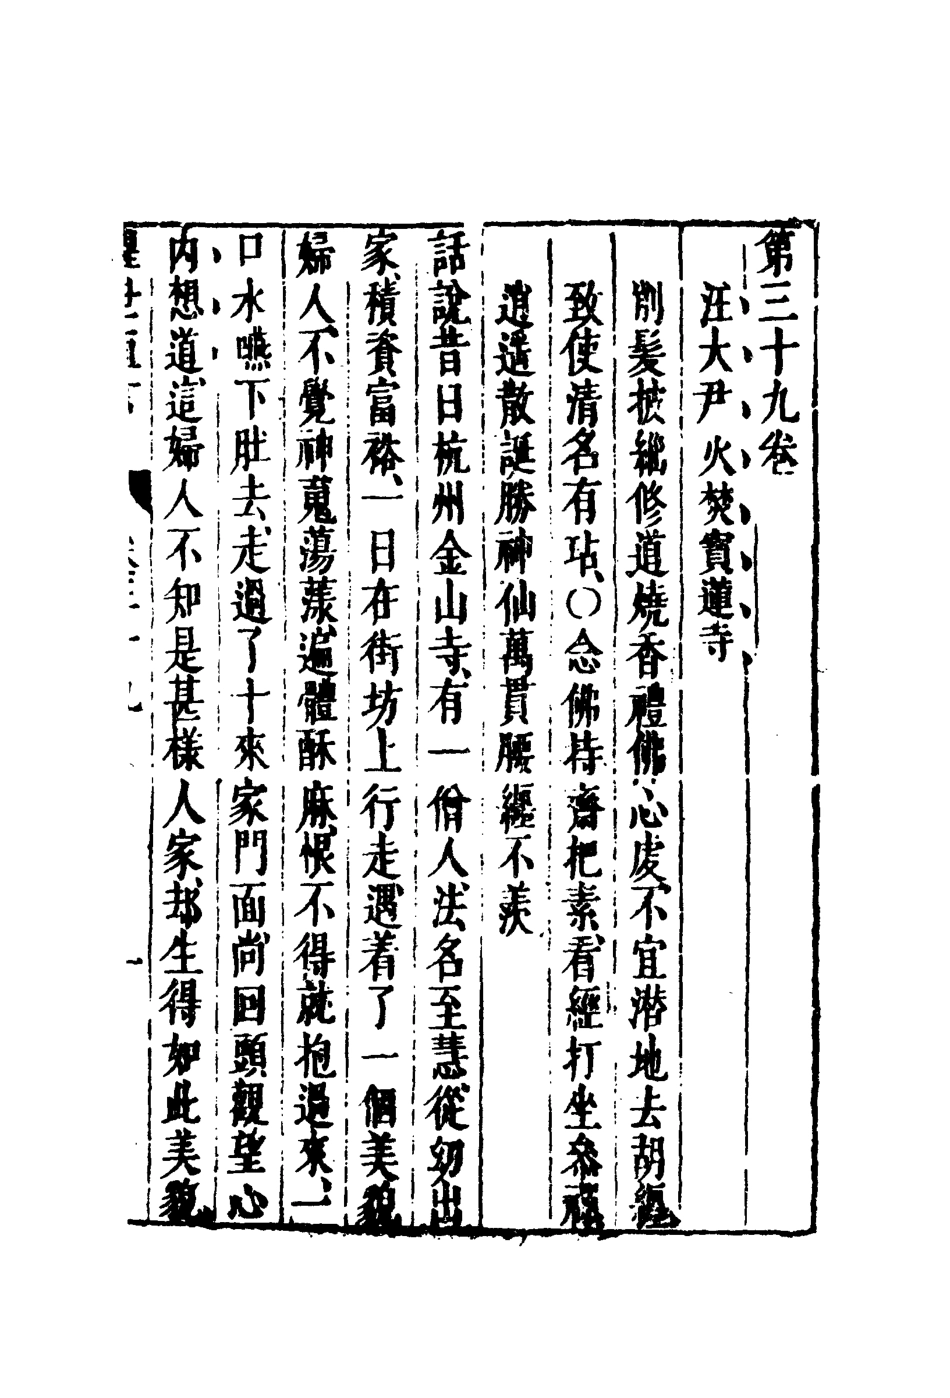 第三十九卷
汪大尹火焚寶蓮寺
削髮披緇修道燒香禮佛心虔、不宜潜地去胡纏
致使清名有玷、〇念佛持齋把素、看經打坐參禪
逍遥散誕勝神仙萬貫腰纏不羨
話說昔日杭州金山寺、有一僧人、法名至慧、從幼出
家、積資富裕、一日在街坊上行走、遇着了一個美貌
婦人、不覺神䰟蕩漾、遍體酥麻、恨不得就抱過來、一
口水嚥下肚去、走過了十來家門面、尚回頭觀望、心
内想道、這婦人不知是甚樣人家、却生得如此美貌、
醒世恒言 卷三十九 一